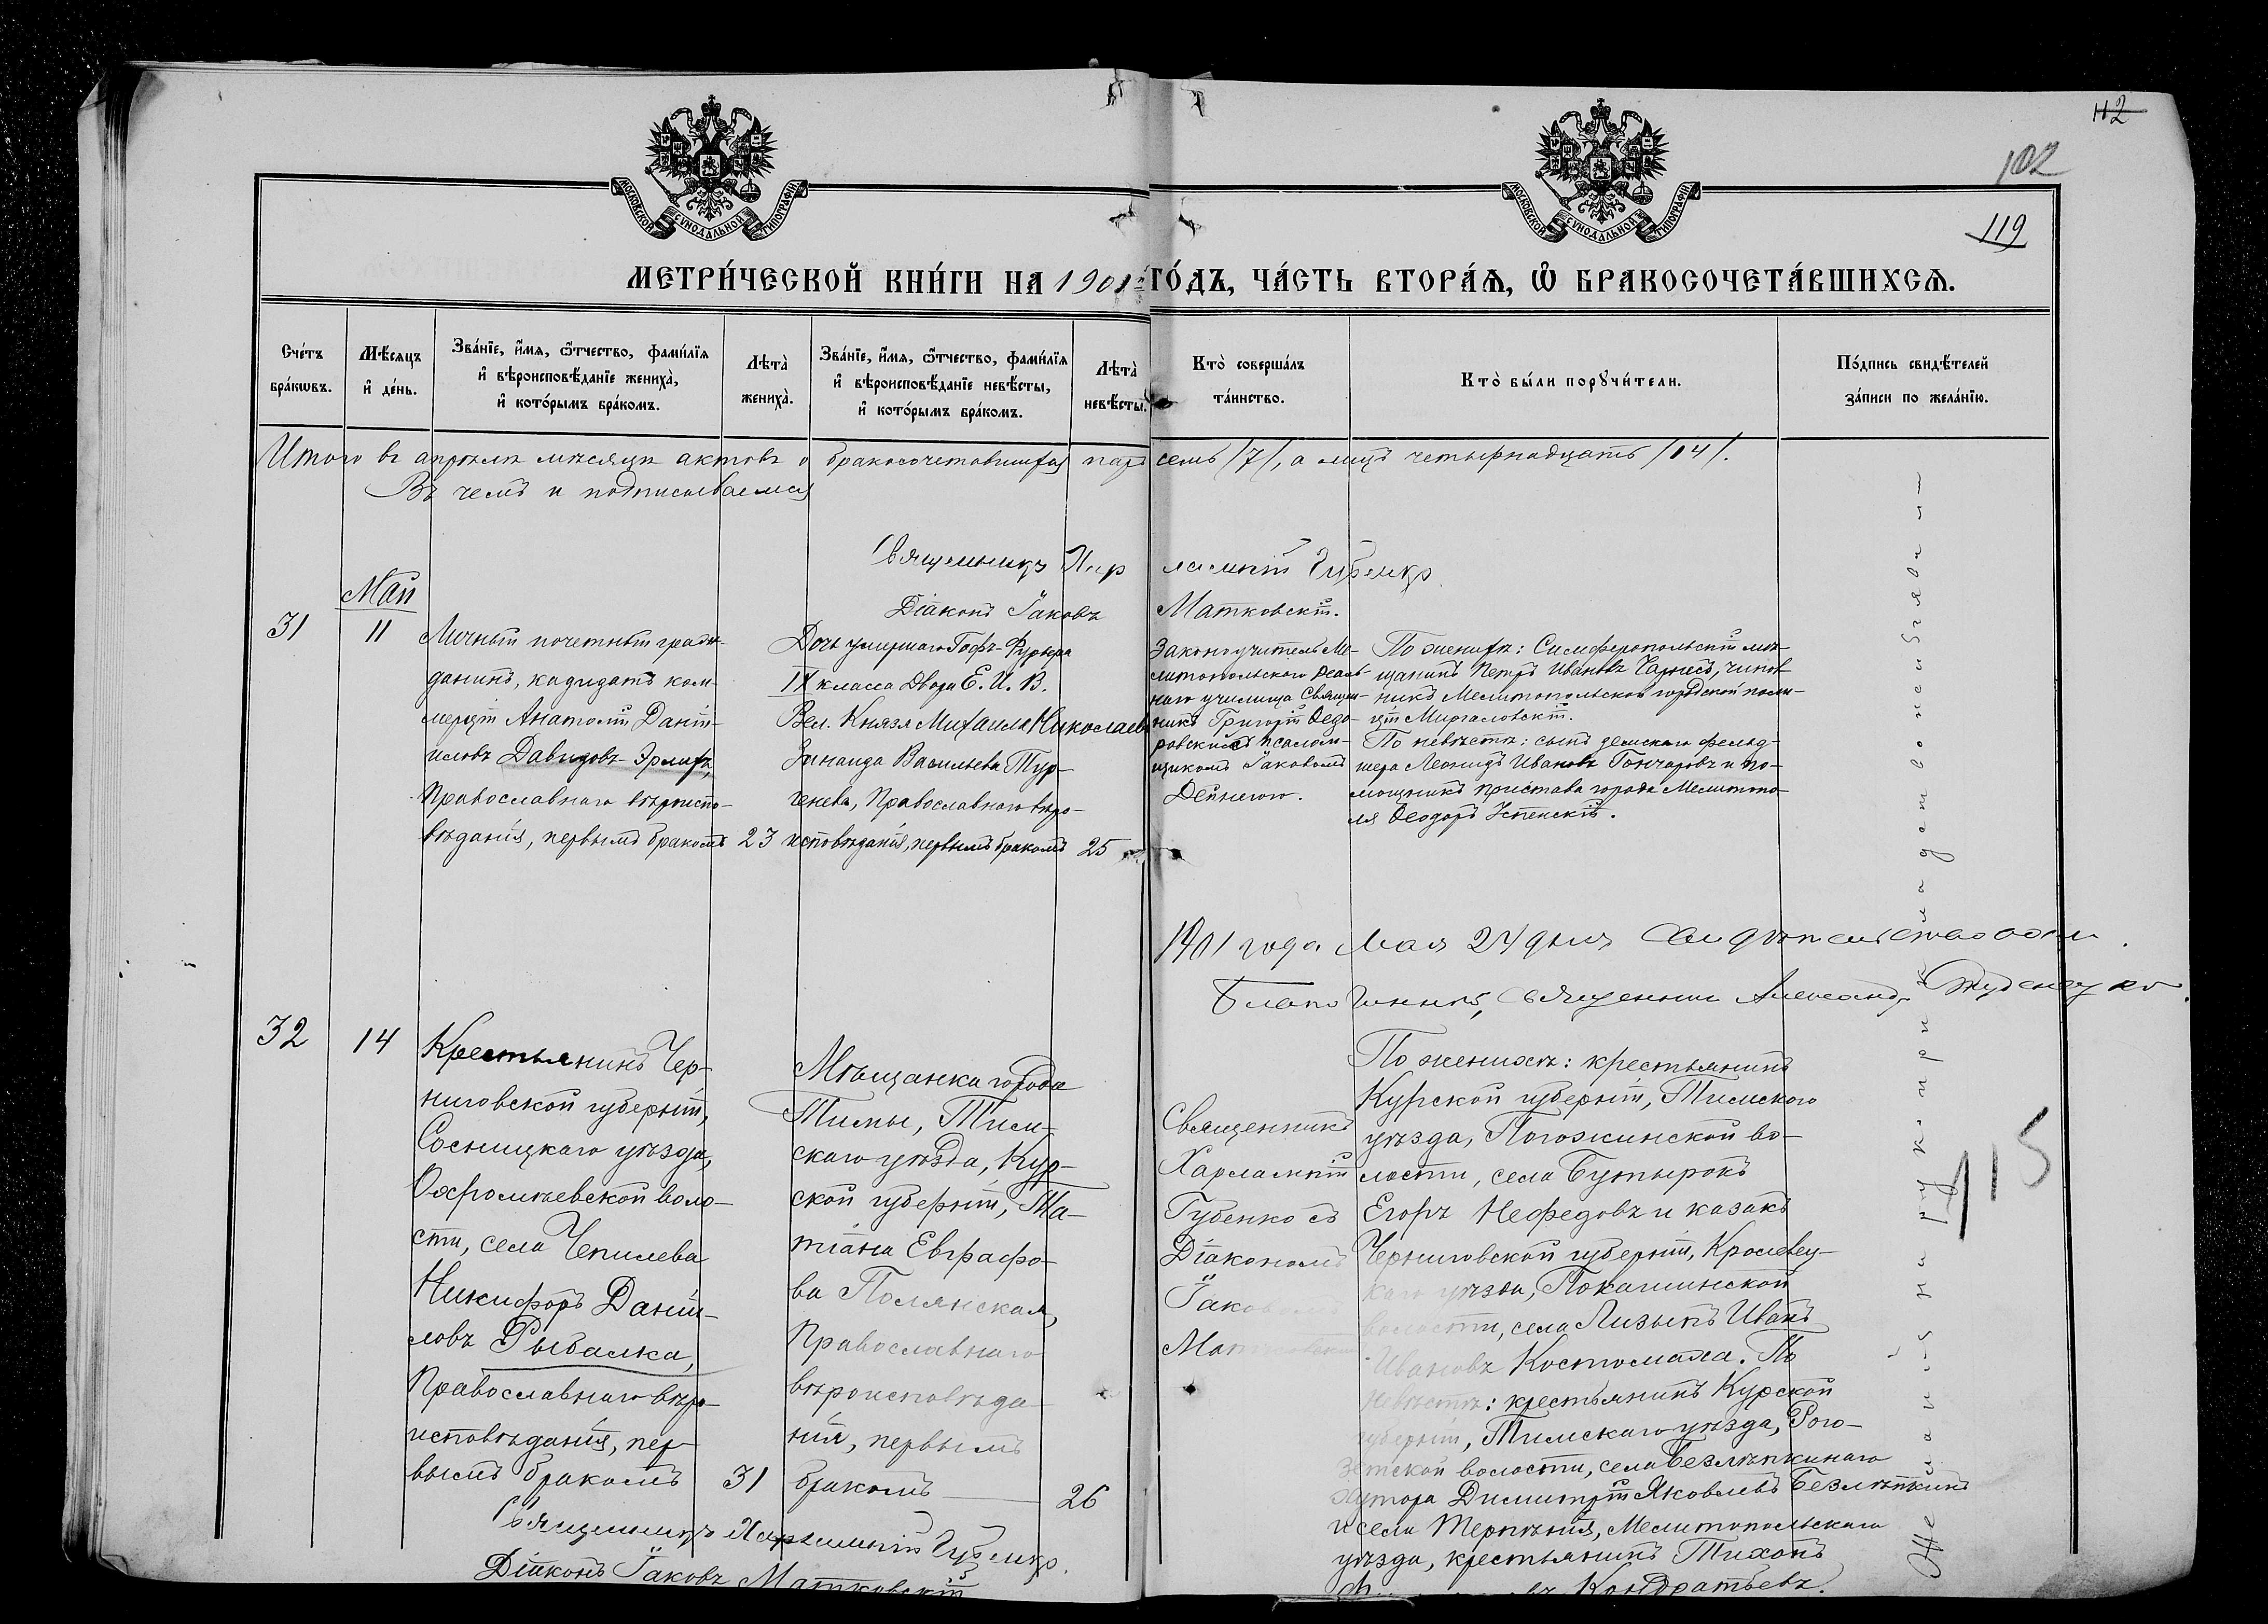 112
102
119
МОСКОВСКОЙ СѴНОДАЛЬНОЙ ТИПОГРАФІИ
МОСКОВСКОЙ СѴНОДАЛЬНОЙ ТИПОГРАФІИ
МЕТРИ́ЧЕСКОЙ КНИ́ГИ НА 1901й ГО́ДЪ, ЧА́СТЬ ВТОРА́Ѧ, Ѽ БРАКОСОЧЕТА́ВШИХСѦ.
Сче́тъ
бра́кѡвъ.
Мѣ́сяцъ
и҆ де́нь.
Зва́нїе, и҆́мѧ, ѻ҆́тчество, фами́лїѧ
и҆ вѣроисповѣ́данїе жениха̀,
и҆ кото́рымъ бра́комъ.
Лѣта̀
жениха̀.
Зва́нїе, и҆́мѧ, ѻ҆́тчество, фами́лїѧ
и҆ вѣроисповѣ́данїе невѣ́сты,
и҆ кото́рымъ бра́комъ.
Лѣта̀
невѣ́сты.
Кто̀ соверша́лъ
та́инство.
Кто̀ бы́ли порꙋчи́тели.
По́дпись свидѣ́телей
за́писи по жела́нїю.
Итого въ апрѣлѣ мѣсяцѣ актовъ о бракосочетавшихся паръ семь /7/, а лицъ четырнадцать /14/.
Въ чемъ и подписываемся
Священникъ Харлампій Губенко
Діаконъ Іаковъ Матковскій.
Май
31
11
Личный почетный граж-
данинъ, кадидатъ ком-
мерціи Анатолій Даніи-
иловъ Давыдовъ-Эрлихъ,
Православнаго вѣроиспо-
вѣданія, первымъ бракомъ
23
Дочь умершаго Гофъ-Фурьера
IX класса Двора Е. И. В.
Вел. Князя Михаила Николаев
Зинаида Васильева Тур-
генева, Православнаго вѣро-
исповѣданія, первымъ бракомъ
25
Законоучитель Ме-
литопольского реаль-
наго училища Священ-
никъ Григорій Ѳедо-
ровскій съ псалом-
щикомъ Іаковомъ
Дейнегою.
По женихѣ: Симферопольскій мѣ-
щанинъ Петръ Ивановъ, чинов-
никъ Мелитопольской городской поли-
ціи Миргаловскій.
По невѣстѣ: сынъ земскаго фельд-
шера Леонидъ Ивановъ Гончаровъ и по-
мощникъ пристава города Мелитопо-
ля Ѳеодоръ Успенскій.
1901 года Мая 24 дня Свидѣтельствовалъ
Благочинный, Священникъ Александръ
32
14
Крестьянинъ Чер-
ниговской губерніи,
Сосницкаго уѣзда,
Охромѣевской воло-
сти, села Чепилева
Никифоръ Даніи-
ловъ Рыбалка,
Православнаго вѣро-
исповѣданія, пер-
вымъ бракомъ
31
Мѣщанка города
Тимы, Тим-
скаго уѣзда, Кур-
ской губерніи, Та-
тіана Евграфо-
ва Полянская,
Православнаго
вѣроисповѣда-
нія, первымъ
бракомъ
26
Священникъ
Харлампій
Губенко съ
Діакономъ
Іаков
Мат
По женихѣ: крестьянинъ
Курской губерніи, Тимского
уѣзда, Погожинской во-
лости, села Бутырокъ
Егоръ Нефедовъ и казакъ
Черниговской губерніи, Кролевец-
каго уѣзда, Покашинской
волости, села Лизыкъ Иванъ
Ивановъ Костомаха. По
невѣстѣ: крестьянинъ Курской
губерніи, Тимскаго уѣзда, Рого-
зецкой волости, села Безлѣпкинаго
хутора Димитрій Яковлевъ Безлѣпкинъ
и села Терпѣнія, Мелитопольскаго
уѣзда, крестьянинъ Тихонъ
Кондратьевъ.
Священникъ Харлампій Губенко.
Діаконъ Іаковъ Матковскій
115